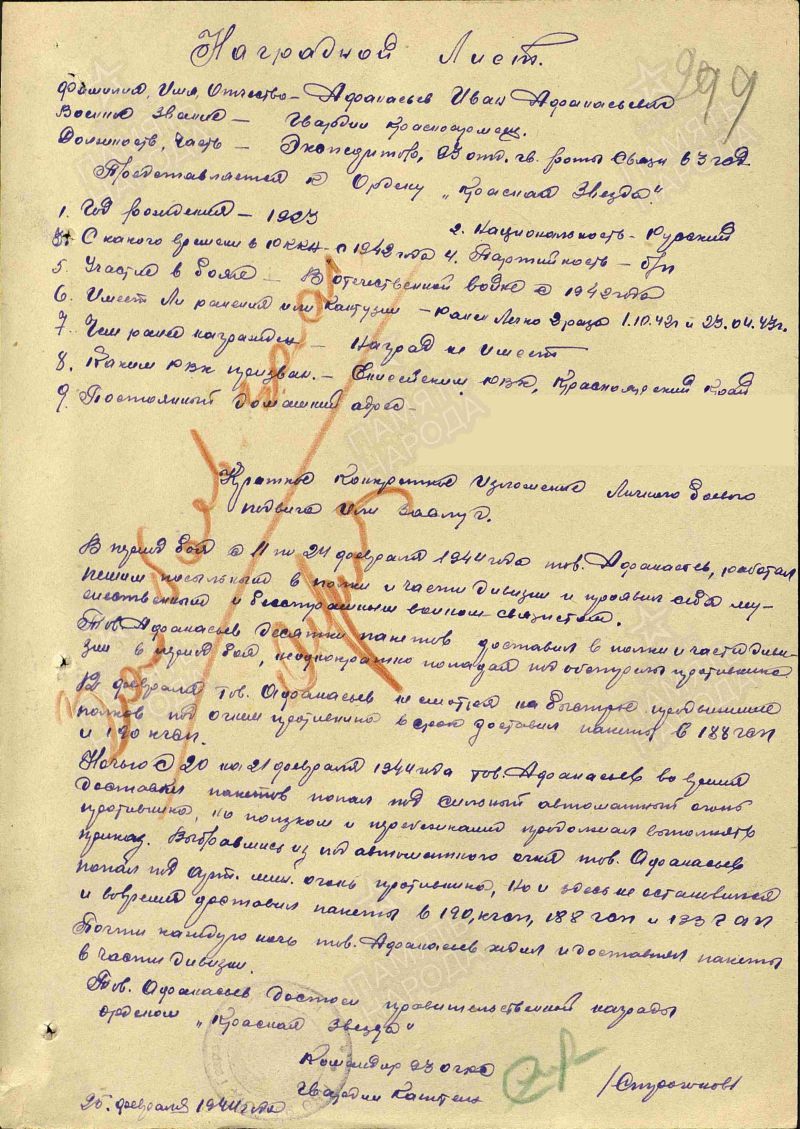 Наградной Лист.
999
Фамилия, Имя, Отчество — Афанасьев Иван Афанасьевич
Военное Звание — Гвардии Красноармеец.
Должность, Часть — Экспедитор, 23 отд. гв. роты связи 63 гсд
Представляется к Ордену „Красная Звезда".
1. Год рождения — 1923
2. Национальность — Русский
3. С какого времени в РККА с 1942 года 4. Партийность — б/п
5. Участие в боях — В отечественной войне с 1942 года
6. Имеет Ли ранения или Контузии — ранен Легко 2 раза 1.10.42г и 23.04.43г.
7. Чем ранее награжден — Наград не имеет
8. Каким РВК призван. — Енисейским РВК, Красноярский Край
9. Постоянный домашний адрес —
Краткое Конкретное Изложение Личного боевого
подвига Или Заслуг.
В период боя с 11 по 24 февраля 1944 года тов. Афанасьев, работал
пешим посыльным в полки и части дивизии и проявил себя му-
жественным и бесстрашным воином-связистом.
Тов. Афанасьев десятки пакетов доставил в полки и части диви-
зии в период боя, неоднократно попадая под обстрелы противника
12 февраля тов. Афанасьев не смотря на быстрые продвижение
полков под огнем противника в срок доставил пакеты в 188 гсп
и 190 кгсп.
Ночью с 20 на 21 февраля 1944 года тов. Афанасьев во время
доставки пакетов попал под сильный автоматный огонь
противника, но ползком и перебежками продолжал выполнять
приказ. Выбравшись из под автоматного огня тов. Афанасьев
попал под арт. мин. огонь противника, но и здесь не остановился
и вовремя доставил пакеты в 190, кгсп, 188 гсп и 133 гап
Почти каждую ночь тов. Афанасьев ходил и доставлял пакеты
в части дивизии.
Тов. Афанасьев достоен правительственной награды
орденом „Красная Звезда"
Командир 23 огрс
Гвардии Капитан
26. февраля 1944 года
ПАМЯТЬ
НАРОДА